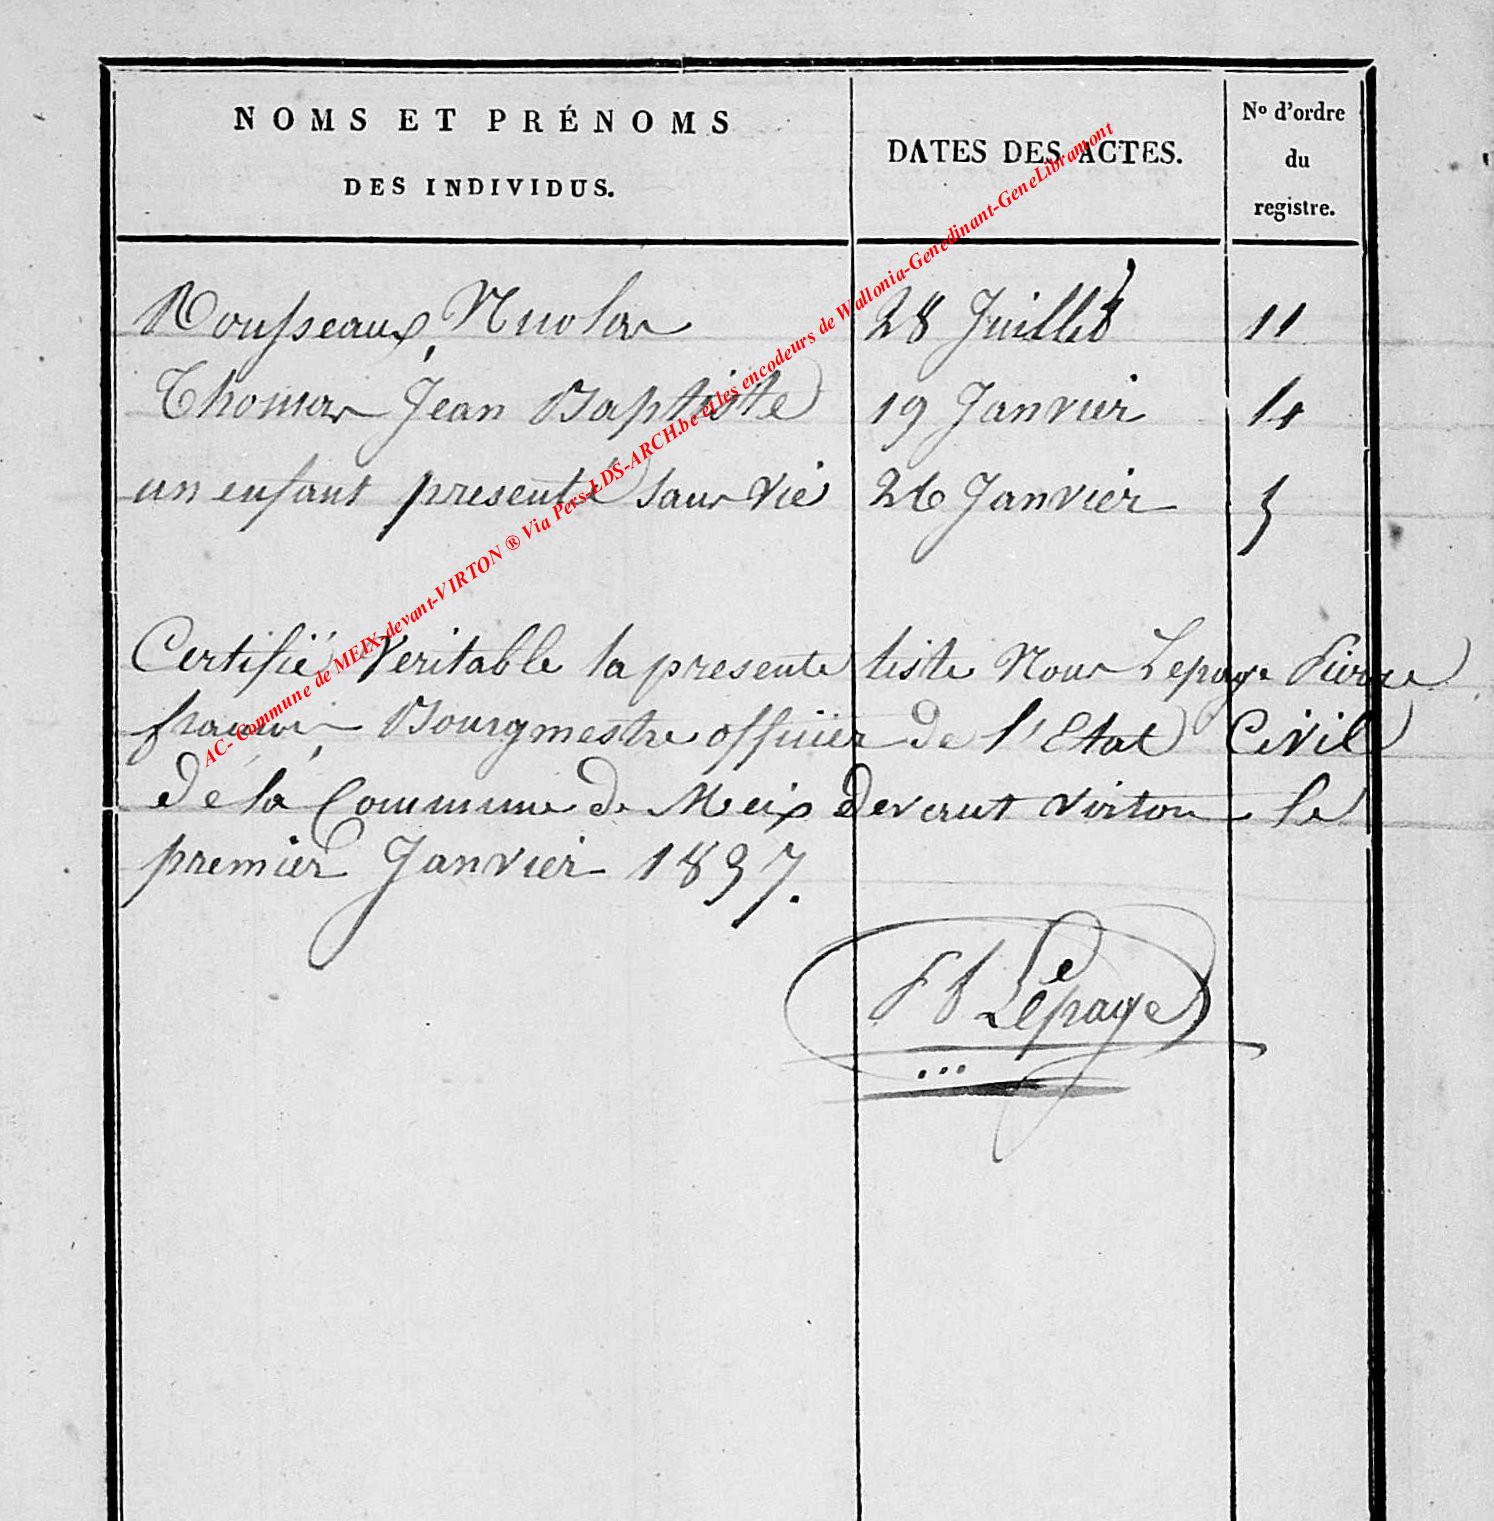 NOMS ET PRÉNOMS
DES INDIVIDUS.
DATES DES ACTES.
No d'ordre
du
registre.
Rousseaux, Nicolas 28 Juillet 11
Thomas Jean Baptiste 19 Janvier 14
un enfant presenté sans vie 26 Janvier 5
Certifié Veritable la presente liste Nous Lepage Pierre
françois Bourgmestre officier de l'Etat Civil
de la Commune de Meix devant Virton le
premier Janvier 1837.
Lepage
AC- Commune de MEIX-devant-VIRTON ® Via Pers-LDS-ARCH.be et les encodeurs de Wallonia-Genedinant-GeneLibramont